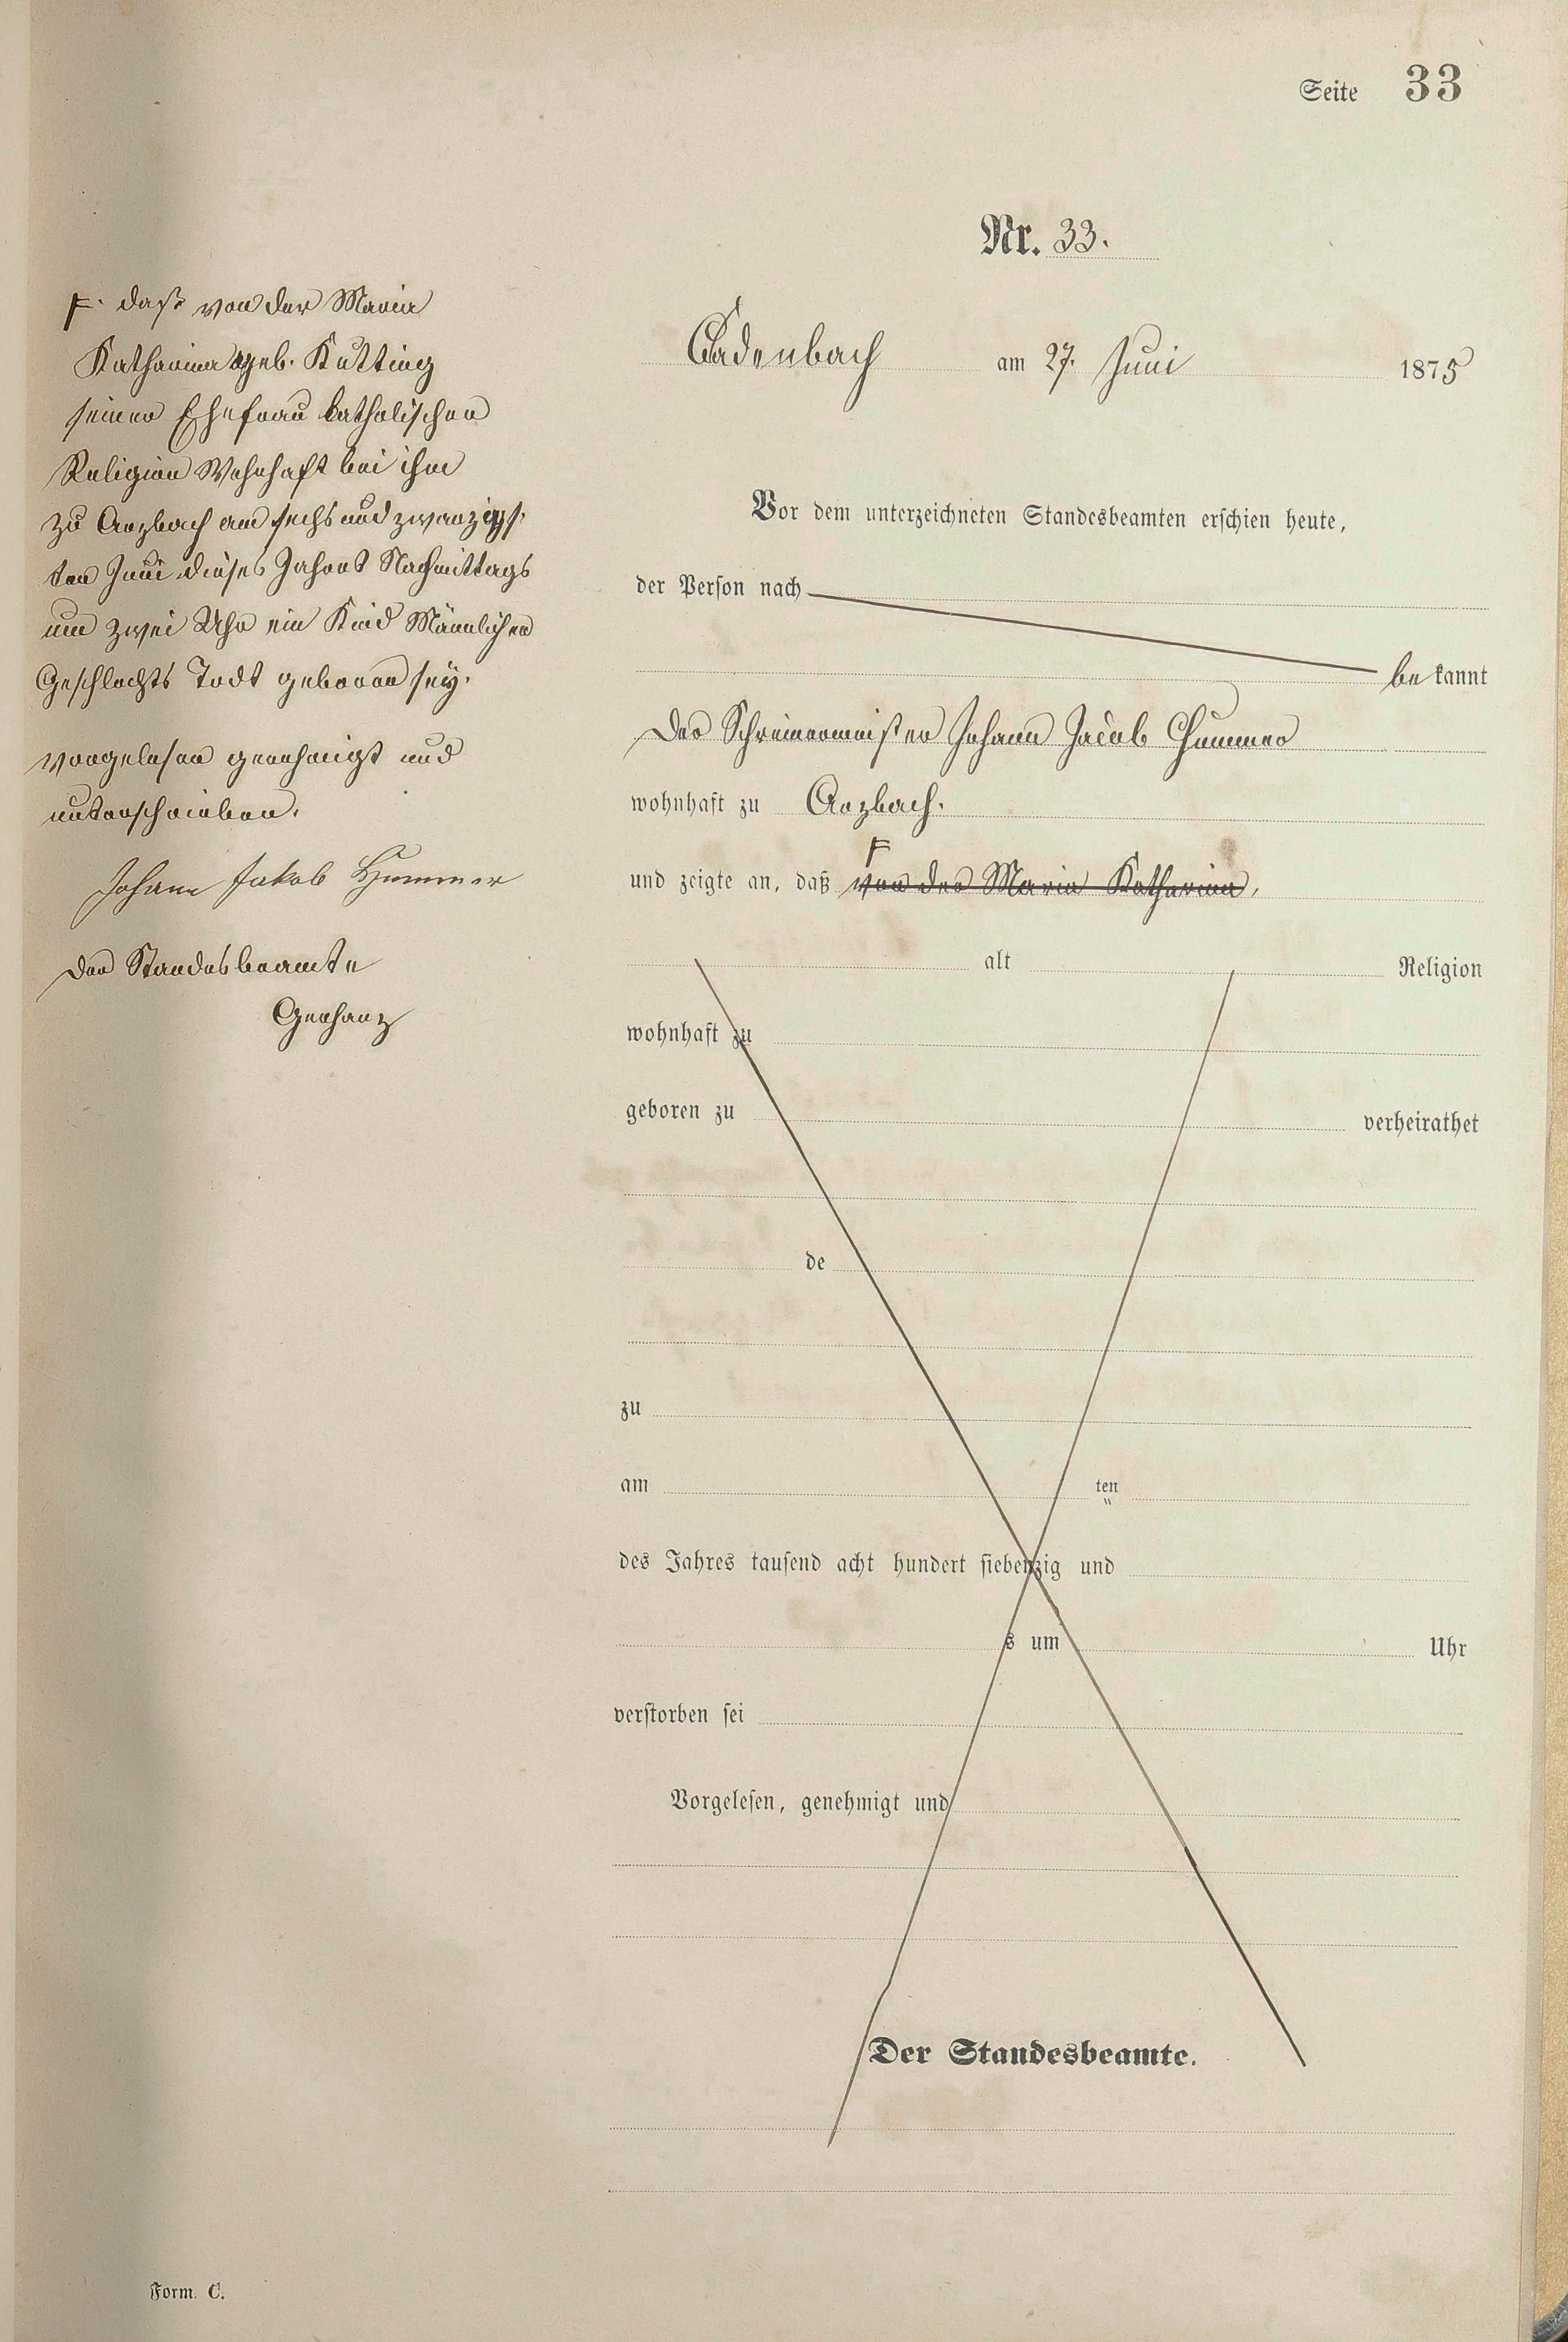 Seite 33
Nr. 33.
Cadenbach am 27. Juni 1875
Vor dem unterzeichneten Standesbeamten erschien heute,
der Person nach
bekannt
Der Schreinermeister Johann Jacob Hummer
wohnhaft zu Arzbach.
F
und zeigte an, daß von der Maria Katharina,
alt Religion
wohnhaft zu
geboren zu verheirathet
de
zu
am ten
des Jahres tausend acht hundert siebenzig und
s um Uhr
verstorben sei
Vorgelesen, genehmigt und
Der Standesbeamte.
F. daß von der Maria
Katharina geb. Kutting
seiner Ehefrau katholischer
Religion Wohnhaft bei ihm
zu Arzbach am sechs und zwanzigs-
ten Juni dieses Jahres Nachmittags
um zwei Uhr ein Kind Männlichen
Geschlechts Todt geboren sey.
vorgelesen genehmigt und
unterschrieben.
Johann Jakob Hummer
Der Standesbeamte
Gerhanz
Form. C.